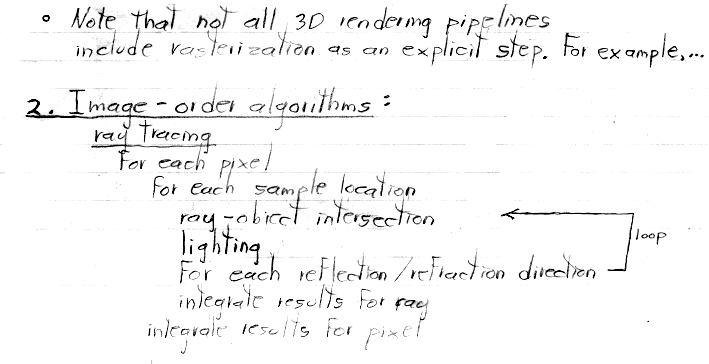 • Note that not all 3D rendering pipelines
include rasterization as an explicit step. For example,...
2. Image-order algorithms:
ray tracing
For each pixel
For each sample location
ray-object intersection
lighting
For each reflection/refraction direction
loop
integrate results for ray
integrate results for pixel